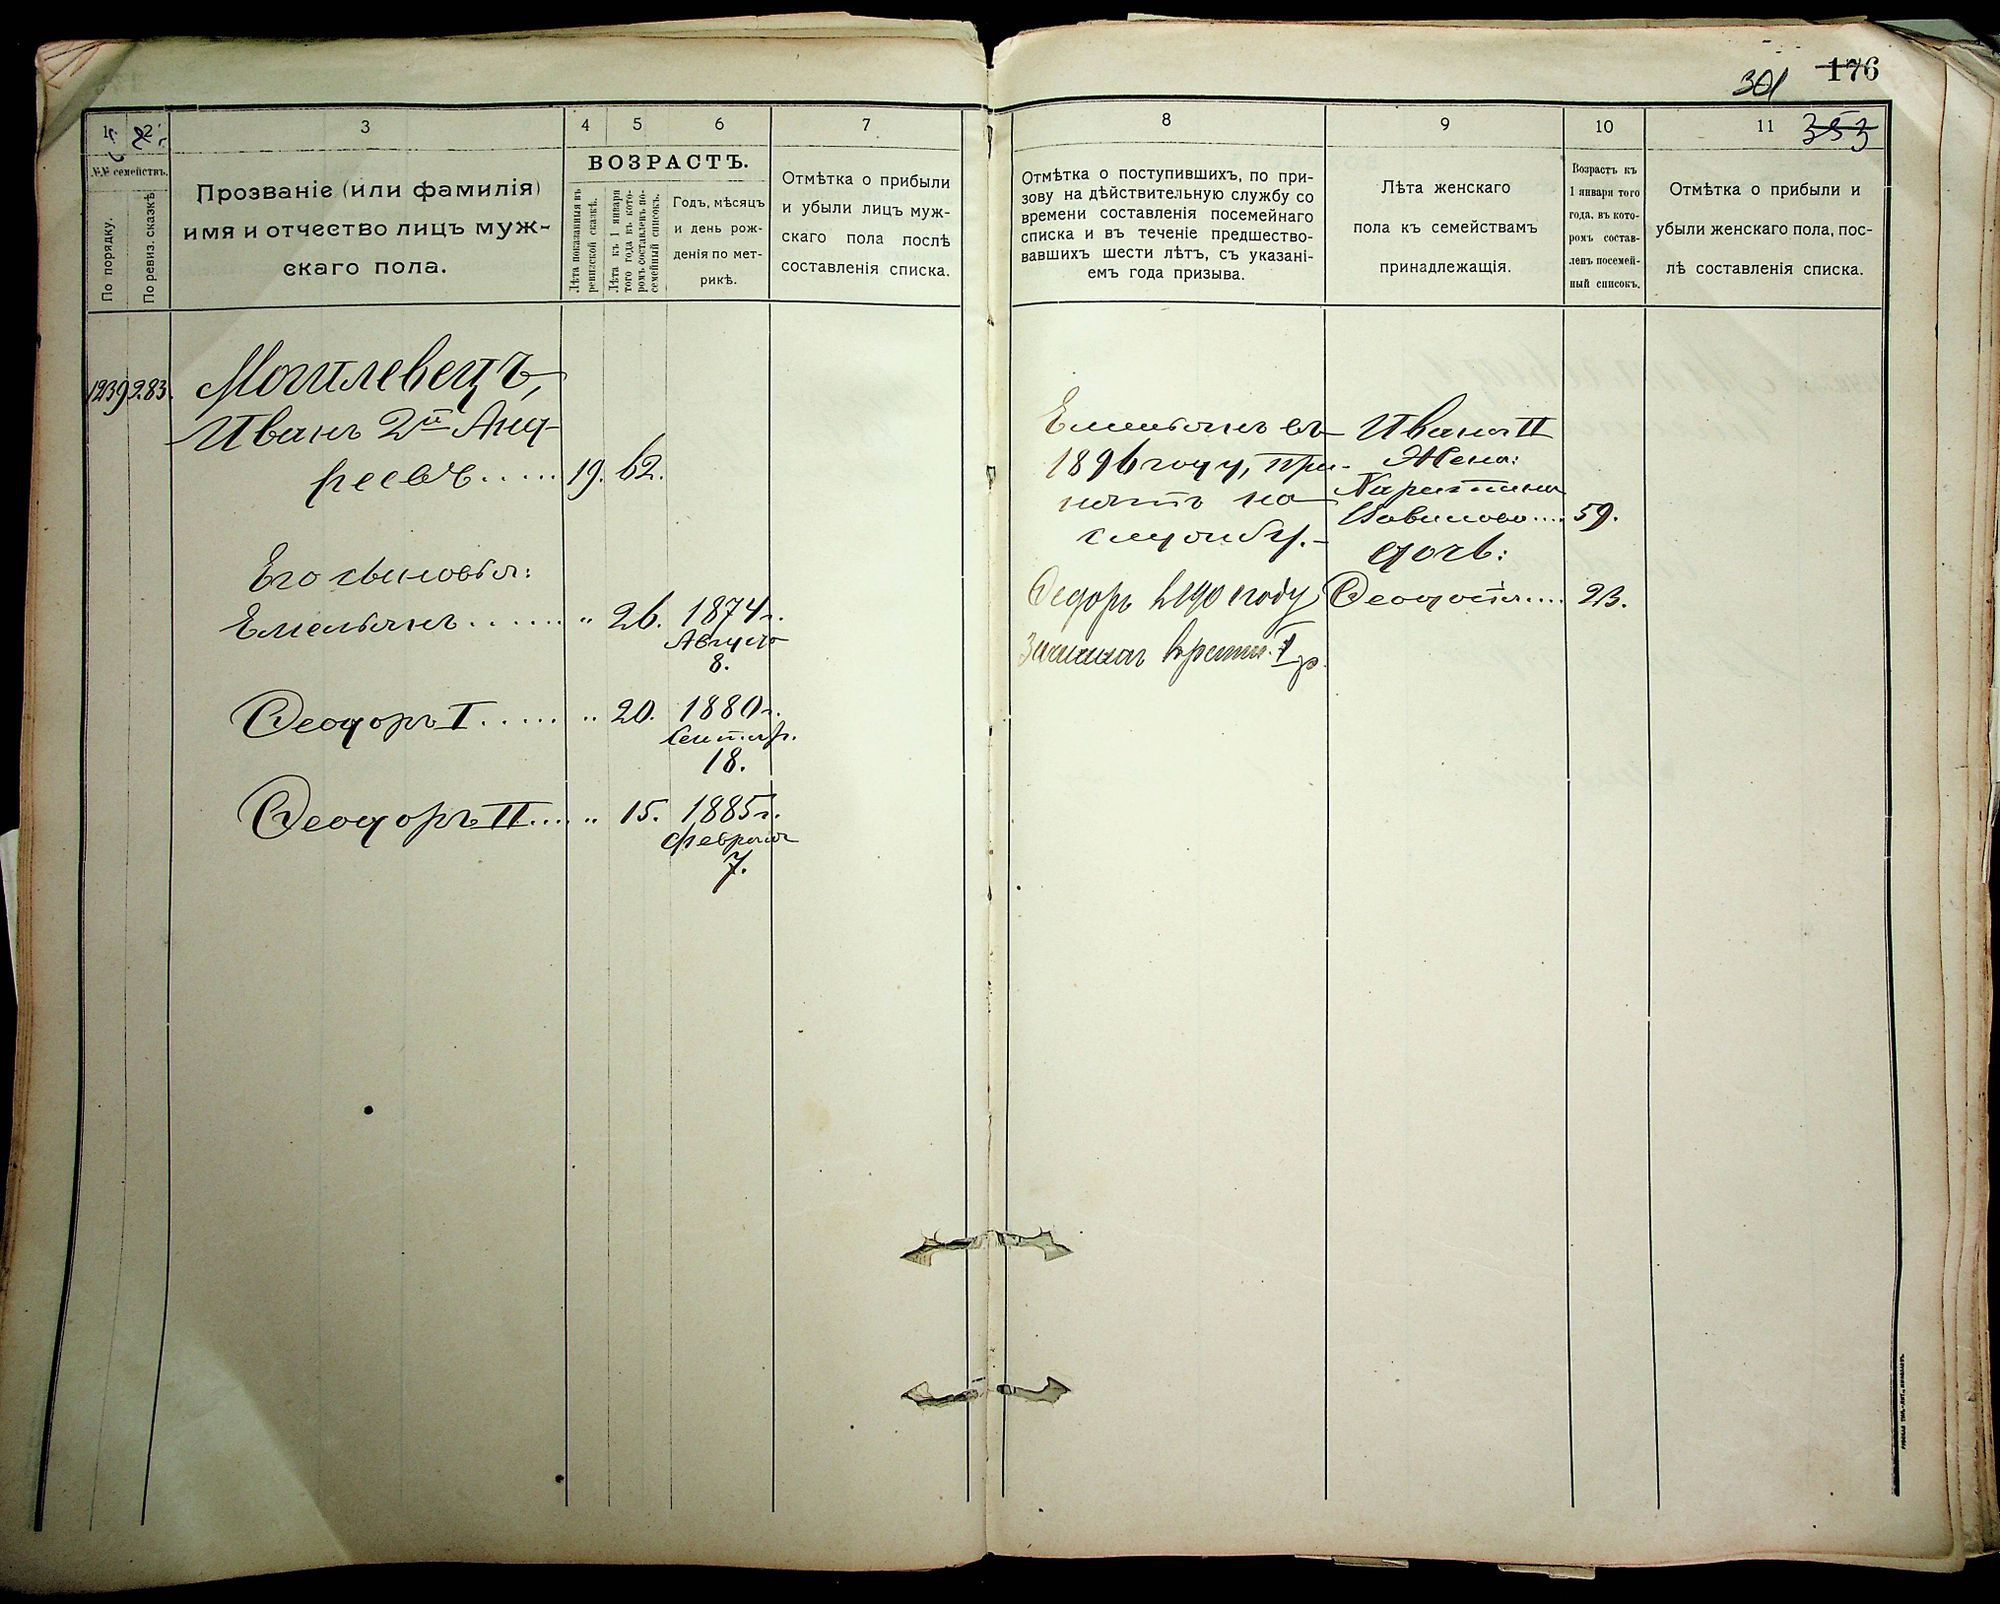 301 176
1 2 3 4 5 6 7
№№ семействъ.
По порядку.
По ревиз. сказкѣ
Прозваніе (или фамилія)
имя и отчество лицъ муж-
скаго пола.
ВОЗРАСТЪ.
Лѣта показанныя въ
ревизской сказкѣ.
Лѣта къ 1 января
того года въ кото-
ромъ составленъ по-
семейный списокъ.
Годъ, мѣсяцъ
и день рож-
денія по мет-
рикѣ.
Отмѣтка о прибыли
и убыли лицъ муж-
скаго пола послѣ
составленія списка.
1239 283. Могилевецъ,
Иванъ 2й Анд-
реевъ..... 19. 62.
Его сыновья:
Емельянъ...... " 26. 1874г.
Августа
8.
Феодоръ I...... " 20. 1880г.
Сентябр.
18.
Феодоръ II.... " 15. 1885г.
Февраля
7.
8 9 10 11 353
Отмѣтка о поступившихъ, по при-
зову на дѣйствительную службу со
времени составленія посемейнаго
списка и въ теченіе предшество-
вавшихъ шести лѣтъ, съ указані-
емъ года призыва.
Лѣта женскаго
пола къ семействамъ
принадлежащія.
Возрастъ къ
1 января того
года, въ кото-
ромъ состав-
ленъ посемей-
ный списокъ.
Отмѣтка о прибыли и
убыли женскаго пола, пос-
лѣ составленія списка.
Емельянъ въ
1896 году, при-
нятъ на
службу.-
Федоръ году
Ивана II
Жена:
Харитина
Вавилова.... 59.
дочь:
Феодосія.... 23.